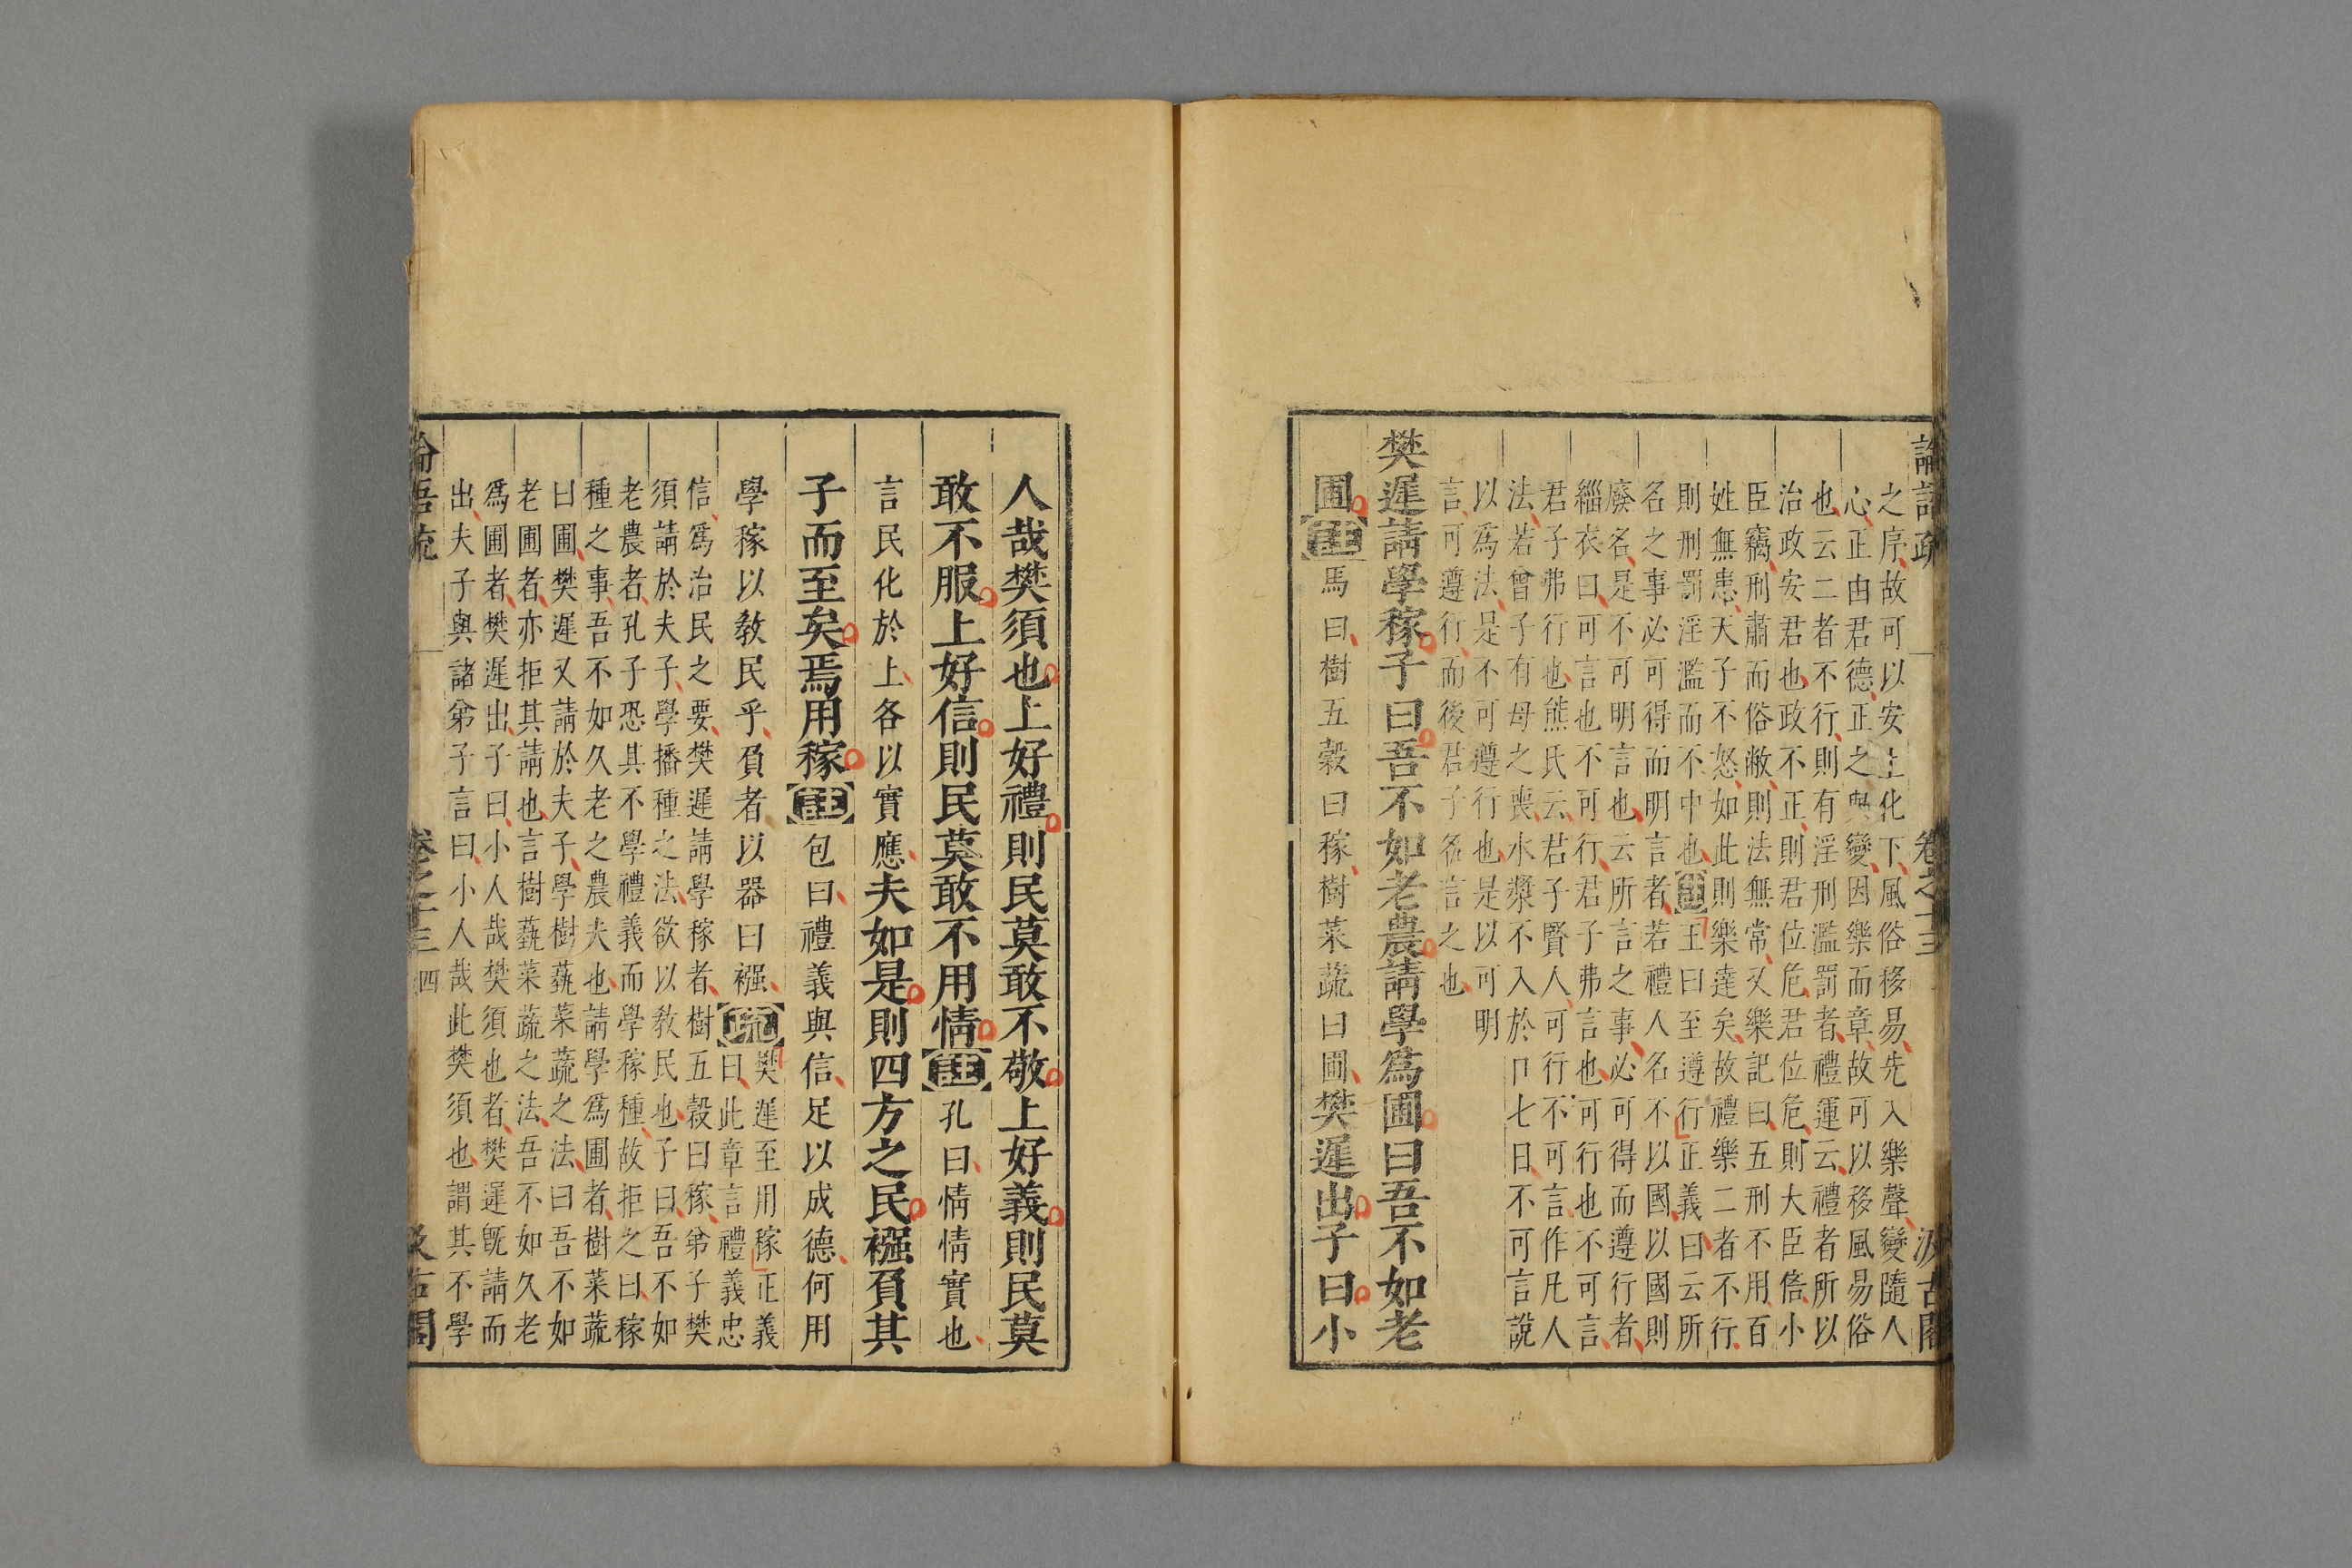 論語疏 卷之十三 汲古閣
之序故可以安上化下風俗移易先入樂聲變隨人
心正由君德正之與變因樂而章故可以移風易俗
也云二者不行則有淫刑濫罰者禮運云禮者所以
治政安君也政不正則君位危君位危則大臣倍小
臣竊刑肅而俗敝則法無常又樂記曰五刑不用百
姓無患天子不怒如此則樂達矣故禮樂二者不行
則刑罰淫濫而不中也註王曰至遵行正義曰云所
名之事必可得而明言者若禮人名不以國以國則
廢名是不可明言也云所言之事必可得而遵行者
緇衣曰可言也不可行君子弗言也可行也不可言
君子弗行也熊氏云君子賢人可行不可言作凡人
法若曾子有母之喪水漿不入於口七日不可言說
以爲法是不可遵行也是以可明
言可遵行而後君子名言之也
樊遲請學稼子曰吾不如老農請學爲圃曰吾不如老
圃註馬曰樹五穀曰稼樹菜蔬曰圃樊遲出子曰小
人哉樊須也上好禮則民莫敢不敬上好義則民莫
敢不服上好信則民莫敢不用情註孔曰情情實也
言民化於上各以實應夫如是則四方之民襁負其
子而至矣焉用稼註包曰禮義與信足以成德何用
學稼以敎民乎負者以器曰襁疏樊遲至用稼正義
曰此章言禮義忠
信爲治民之要樊遲請學稼者樹五穀曰稼弟子樊
須請於夫子學播種之法欲以敎民也子曰吾不如
老農者孔子恐其不學禮義而學稼種故拒之曰稼
種之事吾不如久老之農夫也請學爲圃者樹菜蔬
曰圃樊遲又請於夫子學樹蓺菜蔬之法曰吾不如
老圃者亦拒其請也言樹蓺菜蔬之法吾不如久老
爲圃者樊遲出子曰小人哉樊須也者樊遲旣請而
出夫子與諸弟子言曰小人哉此樊須也謂其不學
論語疏 卷之十三 四 汲古閣